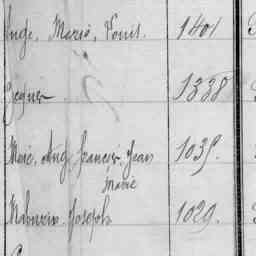 Marie, Louis. 1401
1338
Marie, Aug, François, Jean 1035.
Marie
Mathurin Joseph 1029.